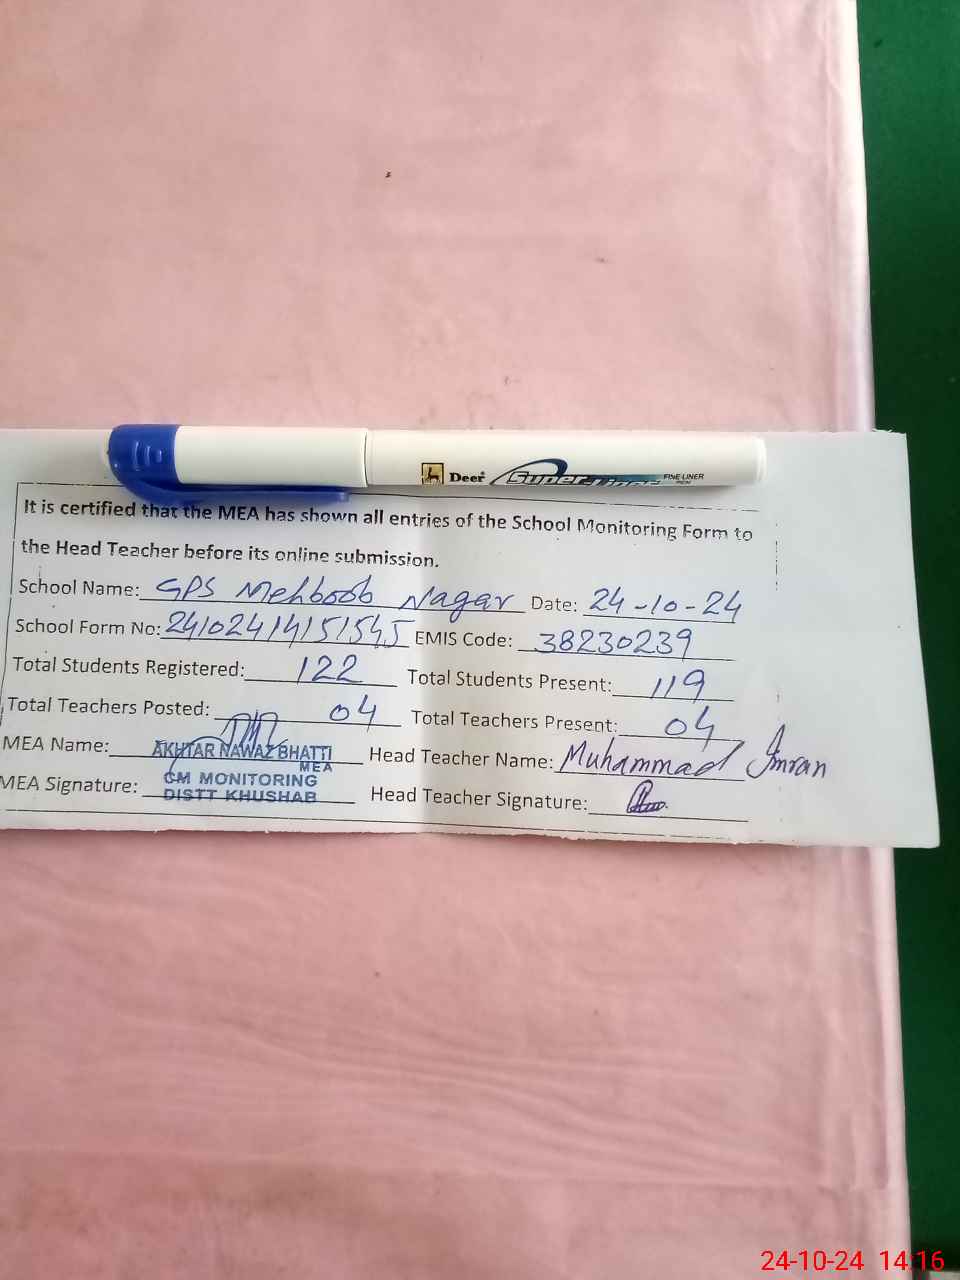 Deer SuperLiner FINE LINER PEN
It is certified that the MEA has shown all entries of the School Monitoring Form to
the Head Teacher before its online submission.
School Name: GPS Mehboob Nagar Date: 24-10-24
School Form No: 24102414151545 EMIS Code: 38230239
Total Students Registered: 122 Total Students Present: 119
Total Teachers Posted: 04 Total Teachers Present: 04
MEA Name: AKHTAR NAWAZ BHATTI Head Teacher Name: Muhammad Imran
MEA
MEA Signature: CM MONITORING Head Teacher Signature:
DISTT KHUSHAB
24-10-24 14:16